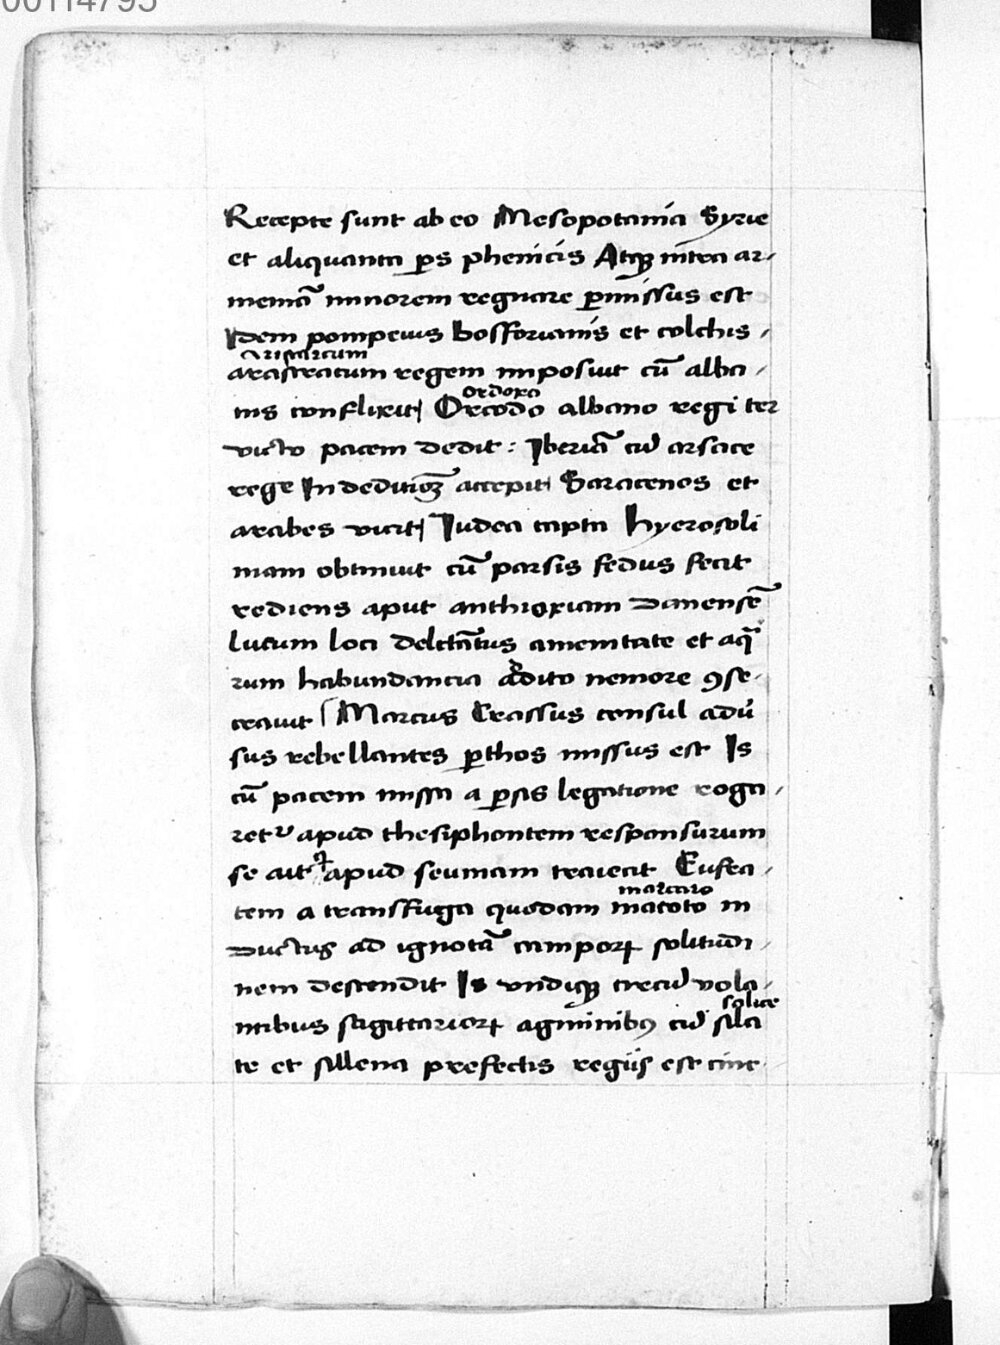 00114795
Recepte sunt ab eo Mesopotamia Syrie
et aliquanta ꝑs phenicis Atqꝫ intra ar-
meniā minorem regnare ꝑmissus est
Idem pompeius bosforianis et colchis -
aristarcum
arastratum regem imposuit cū alba -
ordoxo
nis conflixit Orcodo albano regi ter
victo pacem dedit : Iberiā cū arsace
rege In deditionē accepit Saracenos et
arabes vicit Iudea capta hyerosoli
mam obtinuit cū parsis fedus fecit
rediens aput anthioxiam Danensē
lucum loci delectātus amenitate et aqͣ
rum habundancia addito nemore ꝯse-
crauit Marcus Crassus consul adū
sus rebellantes ꝑthos missus est Is
cū pacem missa a ꝑsis legatione roga -
retᷣ apud thesiphontem responsurum
se ait apud seumam traiecit Eufra -
marcaro
tem a transfuga quodam macoto in
Ductus ad ignotā camporꝝ solitudi -
nem descendit Is vndiqꝫ circū vola -
solice
ntibus sagittariorꝝ agminibꝰ cū sila
te et sillena prefectis regiis est circ -